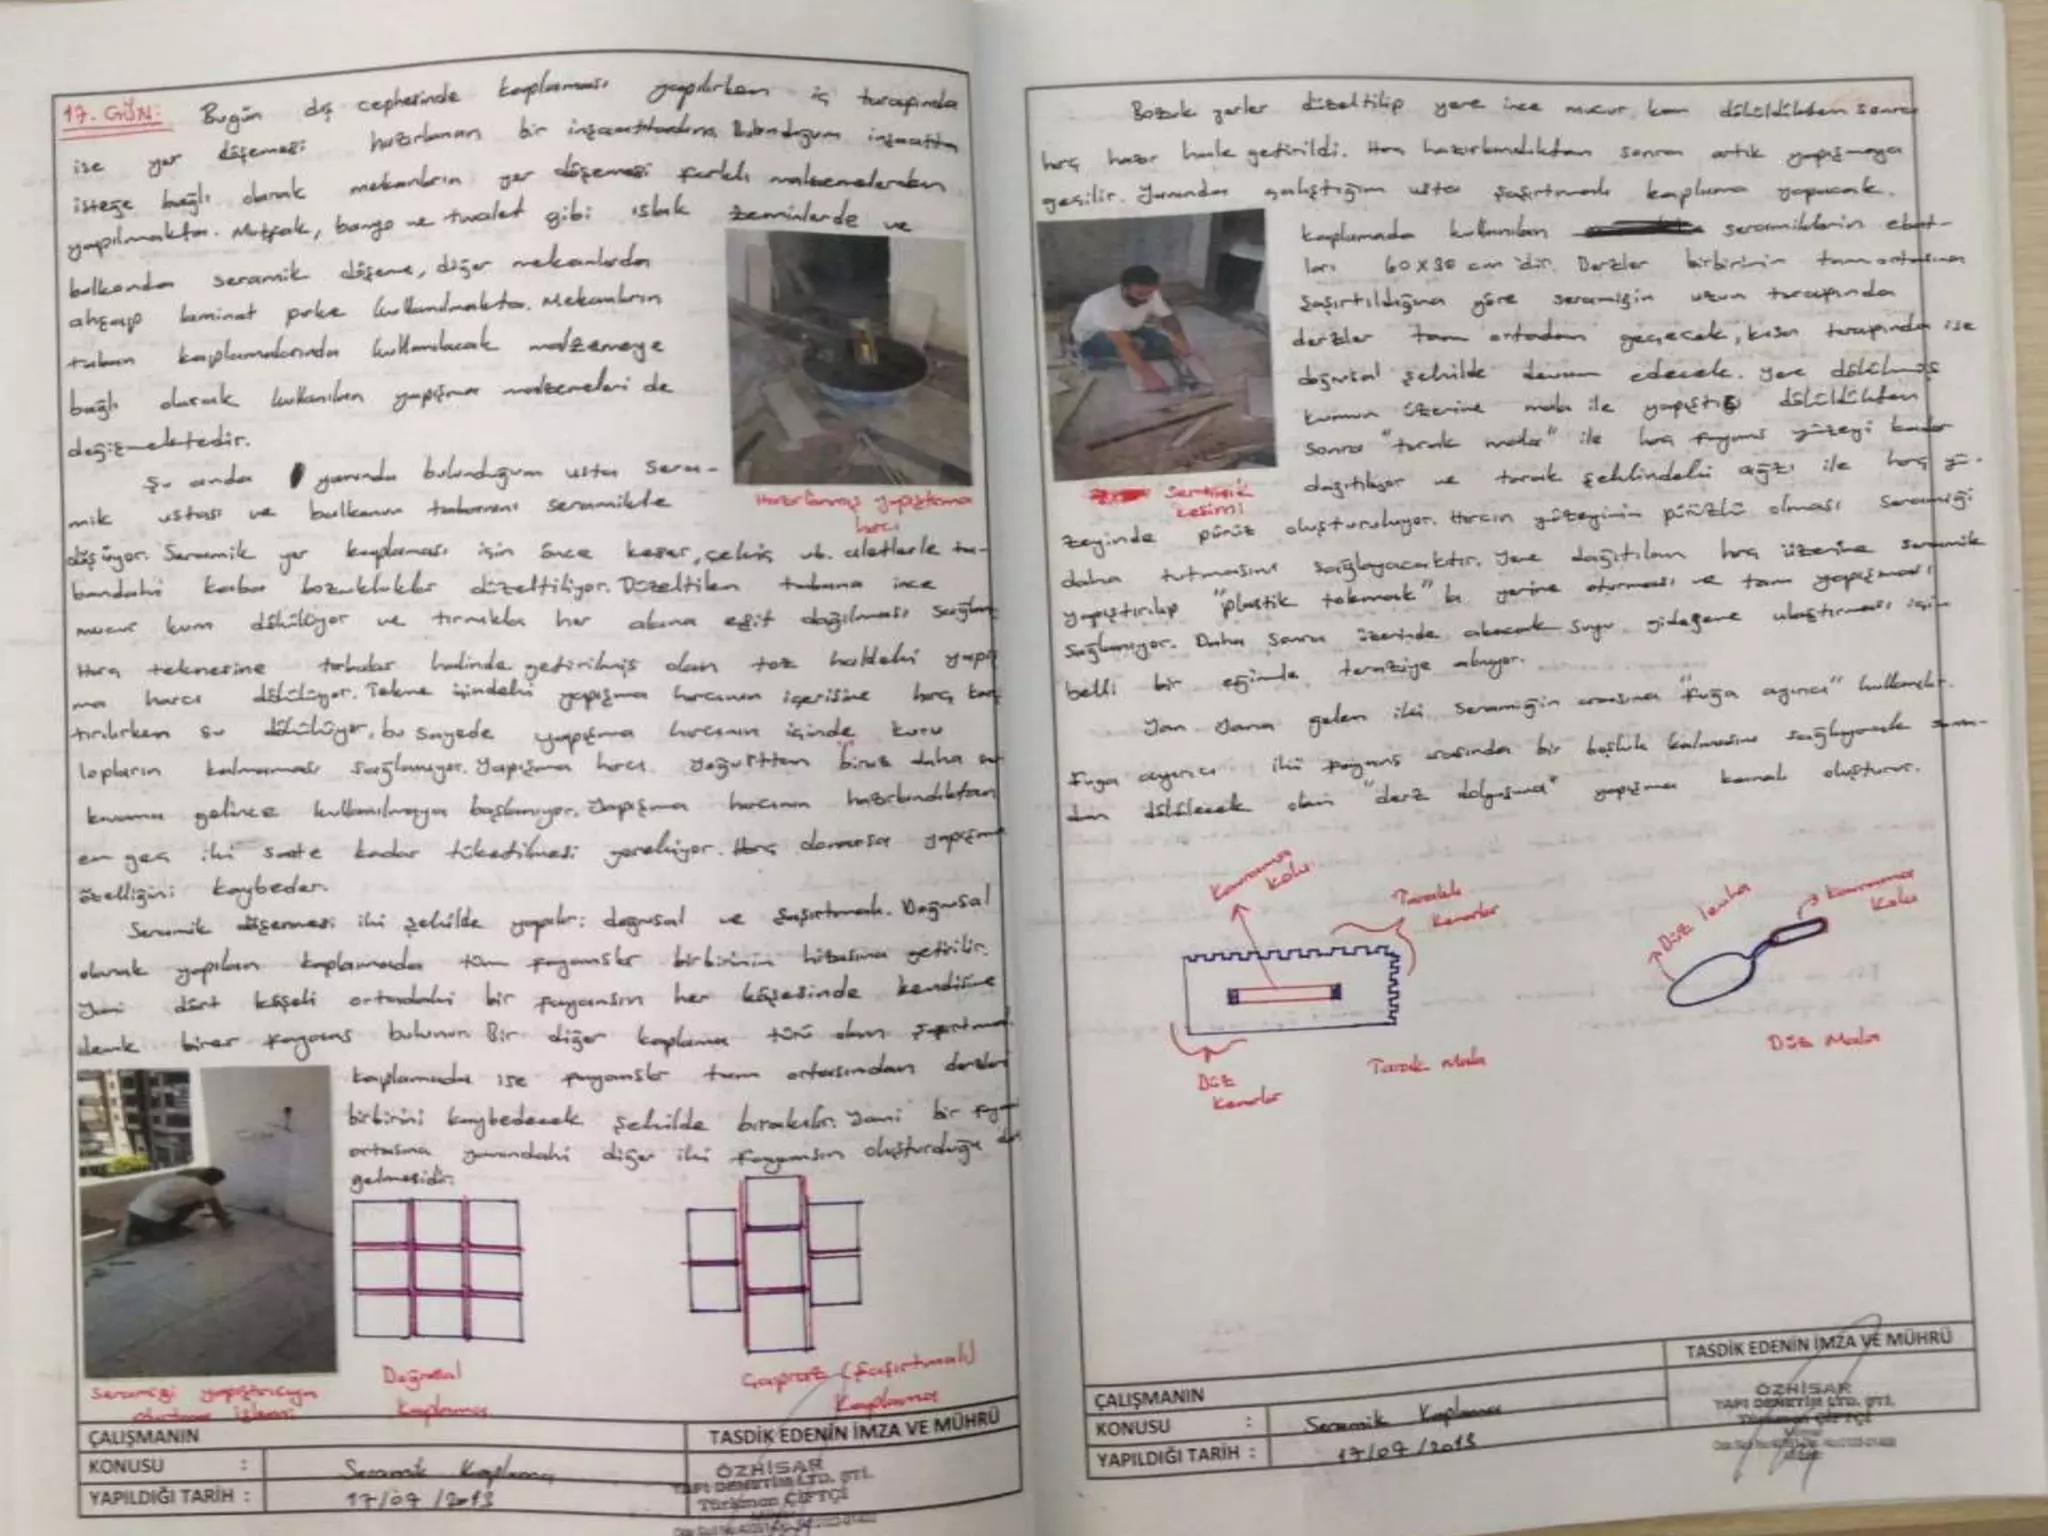 17. GÜN: Bugün dış cephesinde kaplaması yapılırken iç tarafında
ise yer döşemesi hazırlanan bir Bulunduğum inşaatta
isteğe bağlı olarak mekanların yer döşemesi farklı malzemelerden
yapılmakta. Mutfak, banyo ve tuvalet gibi ıslak zeminlerde ve
balkonda seramik döşeme, diğer mekanlarda
ahşap laminat parke kullanılmakta. Mekanların
taban kaplamalarında kullanılacak malzemeye
bağlı olarak kullanılan yapışma malzemeleri de
değişmektedir.
Şu anda yanında bulunduğum usta sera-
mik ustası ve balkonun tabanını seramikle
döşüyor. Seramik yer kaplaması için önce keser, çekiç vb. aletlerle ta-
bandaki kaba bozukluklar düzeltiliyor. Düzeltilen tabana ince
mucur kum dökülüyor ve tırmıkla her alana eşit dağılması
Harç teknesine torbalar halinde getirilmiş olan toz haldeki yapış
ma harcı dökülüyor. Tekne içindeki yapışma harcının içerisine harç karış
tırılırken su dökülüyor, bu sayede yapışma harcının içinde kuru
lopların kalmaması sağlanıyor. Yapışma harcı biraz daha
kıvama gelince kullanılmaya başlanıyor. Yapışma harcının hazırlandıktan
en geç iki saate kadar tüketilmesi gerekiyor. Harç donarsa yapışma
özelliğini kaybeder.
Seramik döşemesi iki şekilde yapılır: doğrusal ve şaşırtmalı. Doğrusal
olarak yapılan kaplamada tüm fayanslar birbirinin hizasına getirilir.
Yani dört köşeli ortadaki bir fayansın her köşesinde kendisine
denk birer fayans bulunur. Bir diğer kaplama türü olan şaşırtmalı
kaplamada ise fayanslar tam ortasından derzler
birbirini kaybedecek şekilde bırakılır. Yani bir
ortasına yanındaki diğer iki fayansın oluşturduğu
gelmesidir.
Hazırlanmış yapıştırma
harcı
Seramiği yapıştırıcıya
oturtma işlemi
Doğrusal
Kaplama
Çapraz (Şaşırtmalı)
Kaplama
ÇALIŞMANIN
TASDİK EDENİN İMZA VE MÜHRÜ
KONUSU : Seramik Kaplama
YAPILDIĞI TARİH : 17/07/2013
ÖZHİSAR
YAPI DENETİM LTD. ŞTİ.
Türkman ÇİFTÇİ
Bozuk yerler düzeltilip yere ince mucur kum döküldükten sonra
harç hazır hale getirildi. Harç hazırlandıktan sonra artık yapışmaya
geçilir. Yanında çalıştığım usta şaşırtmalı kaplama yapacak.
Kaplamada kullanılan seramiklerin ebat-
ları 60x30 cm'dir. Derzler birbirinin tam ortasına
şaşırtıldığına göre seramiğin uzun tarafında
derzler tam ortadan geçecek, kısa tarafında ise
doğrusal şekilde devam edecek. Yere dökülmüş
kumun üzerine mala ile döküldükten
sonra "tarak mala" ile harç fayans yüzeyi kadar
dağıtılıyor ve tarak şeklindeki ağzı ile harç yü-
zeyinde pürüz oluşturuluyor. Harcın yüzeyinin pürüzlü olması seramiği
daha tutmasını sağlayacaktır. Yere dağıtılan harç üzerine seramik
yapıştırılıp "plastik tokmak" la yerine oturması ve tam yapışması
sağlanıyor. Daha sonra üzerinde akacak suyu gidere ulaştırması için
belli bir eğimde teraziye alınıyor.
Yan yana gelen iki seramiğin arasına "fuga ayırıcı" kullanılır.
Fuga ayırıcı iki fayans arasında bir boşluk kalmasını sağlayarak sonra-
dan dökülecek olan "derz dolgusuna" yapışma kanalı oluşturur.
Seramik
kesimi
Kavrama
kolu
Taraklı
Kenarlar
Düz
Kenarlar
Tarak Mala
Düz levha
Kavrama
Kolu
Düz Mala
ÇALIŞMANIN
TASDİK EDENİN İMZA VE MÜHRÜ
KONUSU : Seramik Kaplama
YAPILDIĞI TARİH : 17/07/2013
ÖZHİSAR
YAPI DENETİM LTD. ŞTİ.
Türkman ÇİFTÇİ